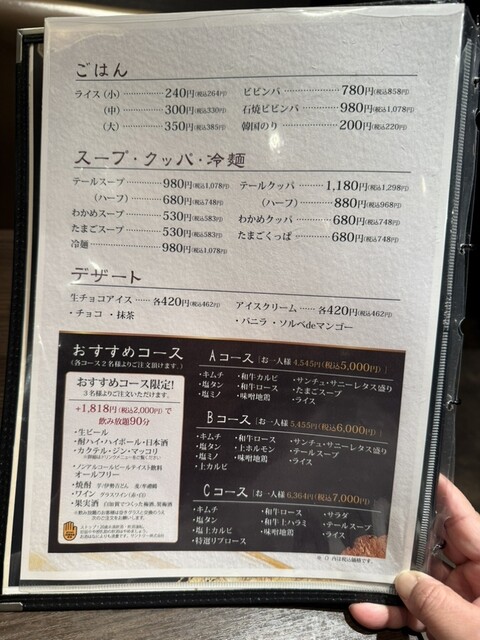 ごはん
ライス(小)............240円(税込264円)
(中)............300円(税込330円)
(大)............350円(税込385円)
ビビンバ............780円(税込858円)
石焼ビビンバ............980円(税込1,078円)
韓国のり............200円(税込220円)
スープ・クッパ・冷麺
テールスープ............980円(税込1,078円)
(ハーフ)............680円(税込748円)
わかめスープ............530円(税込583円)
たまごスープ............530円(税込583円)
冷麺............980円(税込1,078円)
テールクッパ............1,180円(税込1,298円)
(ハーフ)............880円(税込968円)
わかめクッパ............680円(税込748円)
たまごくっぱ............680円(税込748円)
デザート
生チョコアイス......各420円(税込462円)
・チョコ ・抹茶
アイスクリーム......各420円(税込462円)
・バニラ ・ソルベdeマンゴー
おすすめコース
(各コース2名様よりご注文頂けます。)
おすすめコース限定!
3名様よりご注文いただけます。
+1,818円(税込2,000円)で
飲み放題90分
・生ビール
・酎ハイ・ハイボール・日本酒
・カクテル・ジン・マッコリ
・ノンアルコールビールテイスト飲料
オールフリー
・焼酎
・ワイン グラスワイン(赤・白)
・果実酒
Aコース [お一人様 4,545円(税込5,000円)]
・キムチ
・塩タン
・塩ミノ
・和牛カルビ
・和牛ロース
・味噌地鶏
・サンチュ・サニーレタス盛り
・たまごスープ
・ライス
Bコース [お一人様 5,455円(税込6,000円)]
・キムチ
・塩タン
・塩ミノ
・上カルビ
・和牛ロース
・上ホルモン
・味噌地鶏
・サンチュ・サニーレタス盛り
・テールスープ
・ライス
Cコース [お一人様 6,364円(税込7,000円)]
・キムチ
・塩タン
・塩上カルビ
・特選リブロース
・和牛ロース
・和牛上ハラミ
・味噌地鶏
・サラダ
・テールスープ
・ライス
※( )内は税込価格です。